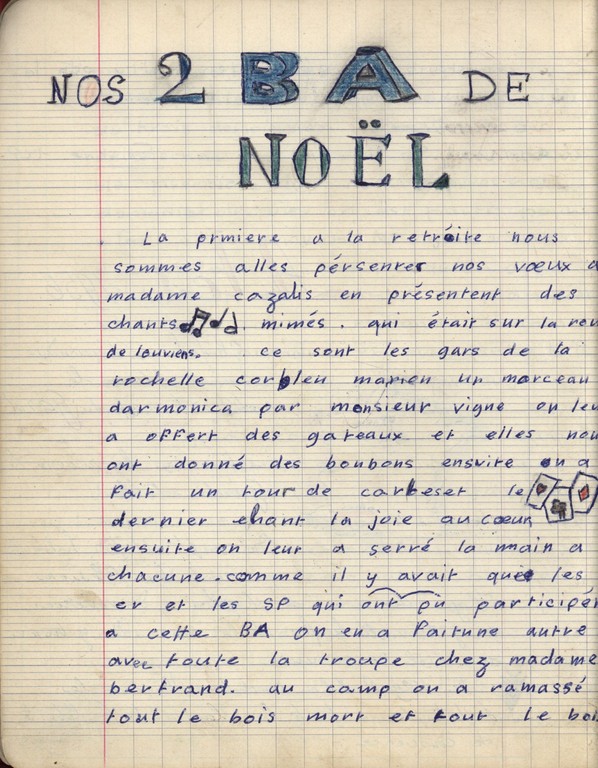 NOS 2 BA DE
NOËL
La prmiere a la retréite nous
sommes alles pérsenter nos vœux a
madame cazalis en présentent des
chants mimés. qui étair sur la rou
de louviens. ce sont les gars de la
rochelle corbleu marien un morceau
darmonica par monsieur vigne on leu
a offert des gateaux et elles nou
ont donné des bonbons ensuite on a
fait un tour de carbeset le
dernier chant la joie au cœur
ensuite on leur a serré la main a
chacune. comme il y avait que les
cr et les SP qui ont pu participér
a cette BA on en a faitune autre
avec toute la troupe chez madame
bertrand. au camp on a ramassé
tout le bois mort et tout le boi